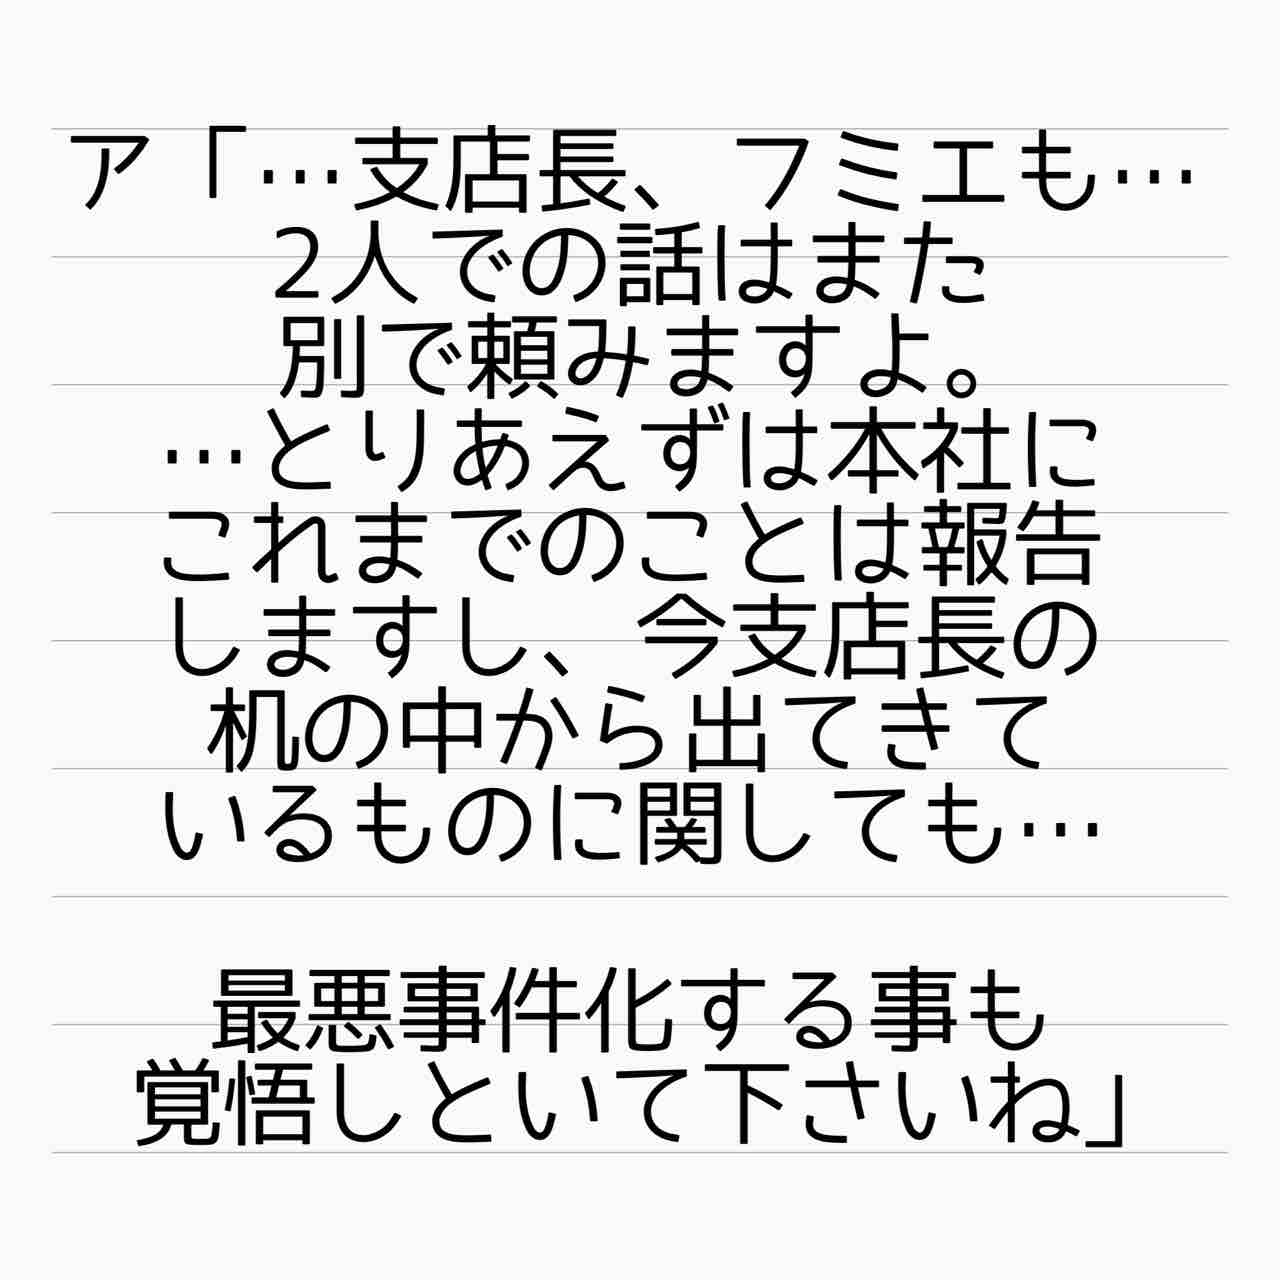 ア「…支店長、フミエも…
2人での話はまた
別で頼みますよ。
…とりあえずは本社に
これまでのことは報告
しますし、今支店長の
机の中から出てきて
いるものに関しても…
最悪事件化する事も
覚悟しといて下さいね」